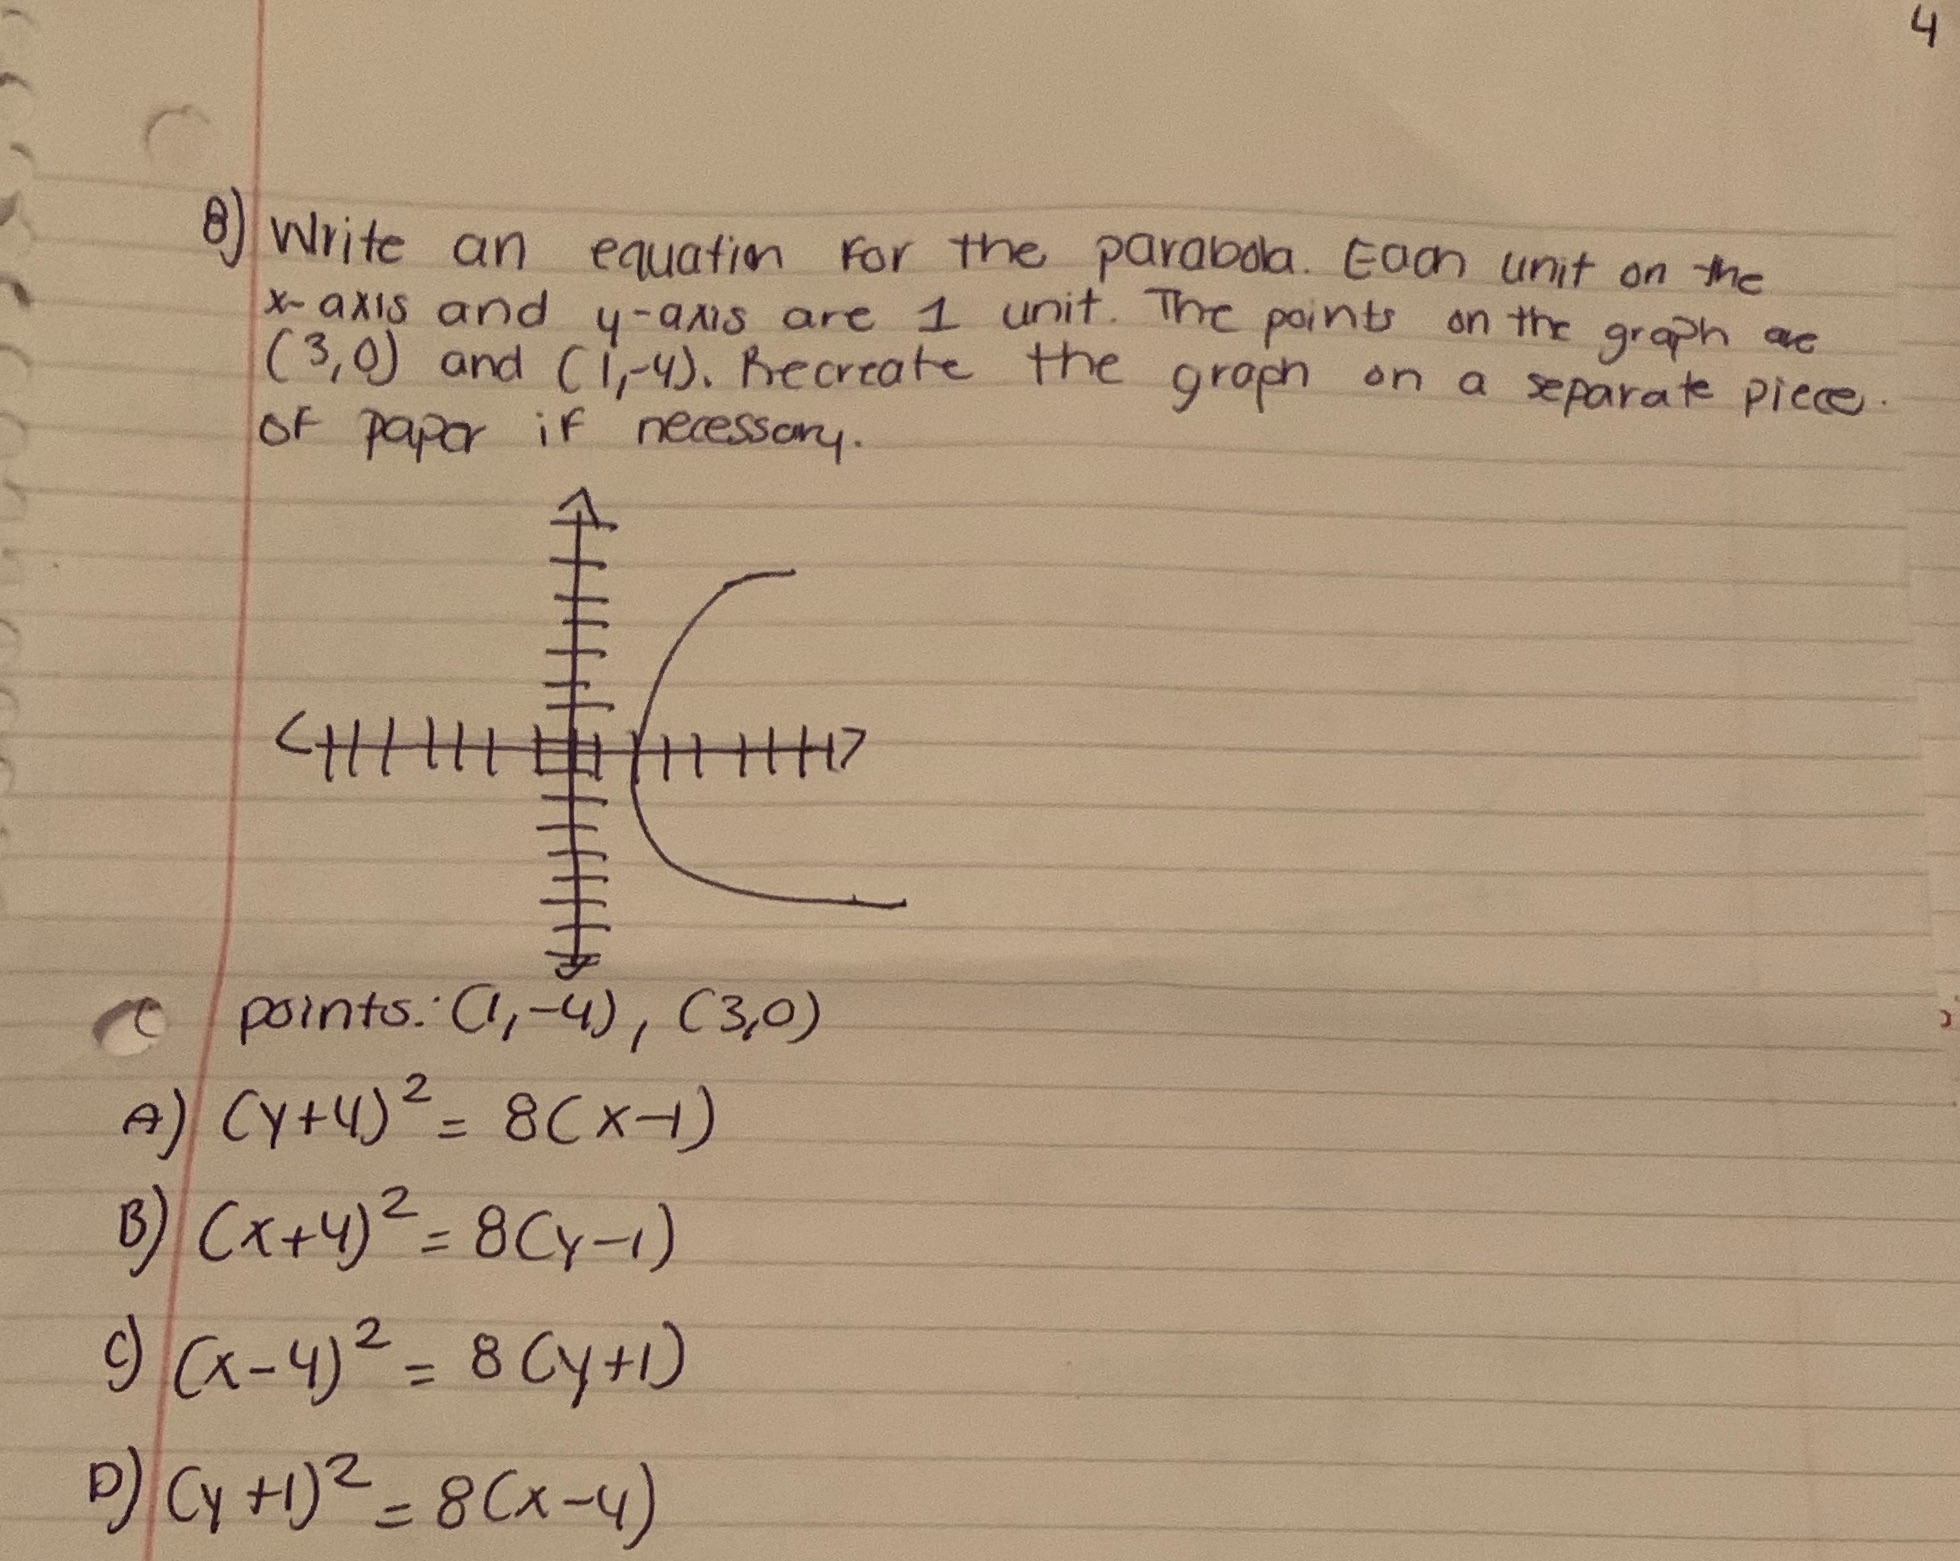 4
8) Write an equation for the parabola. Each unit on the
x-axis and y-axis are 1 unit. The points on the graph are
(3,0) and (1,-4). Recreate the graph on a separate piece.
of paper if necessary.
points: (1,-4), (3,0)
A) (y+4)² = 8(x-1)
B) (x+4)² = 8(y-1)
C) (x-4)² = 8(y+1)
D) (y+1)² = 8(x-4)